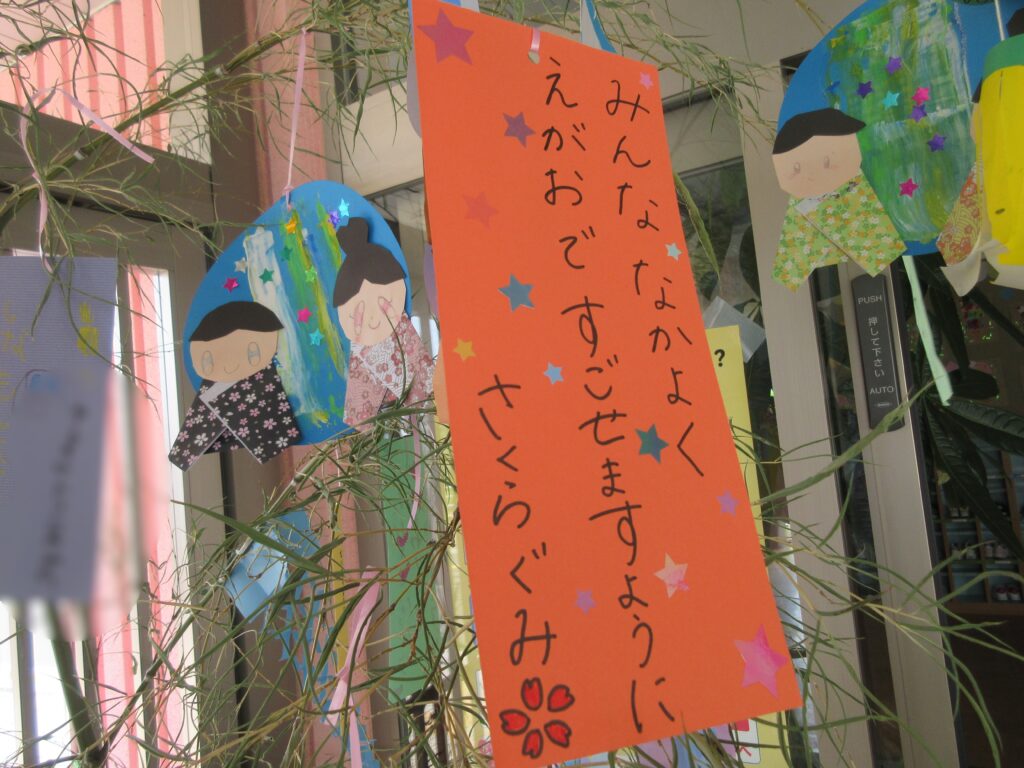 みんな なかよく
えがおで すごせますように
さくらぐみ
?
PUSH
押して下さい
AUTO